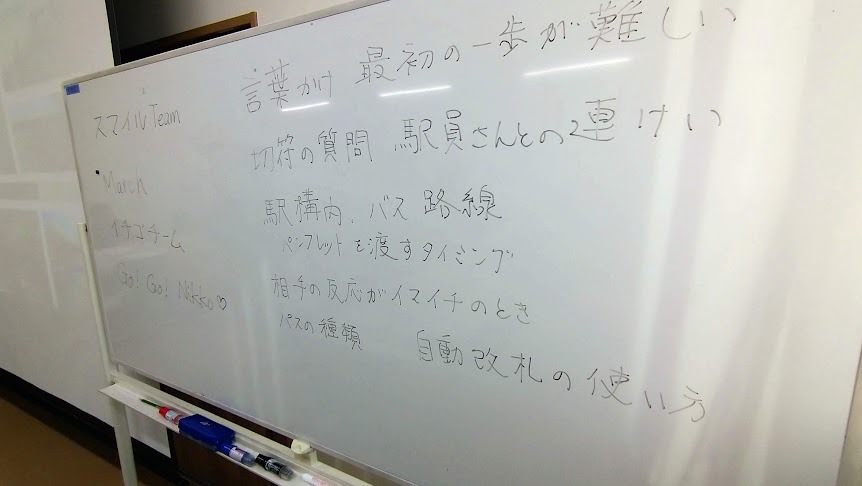 スマイルTeam
March
イチゴチーム
Go! Go! Nikko♡
言葉かけ 最初の一歩が難しい
切符の質問 駅員さんとの連けい
駅構内、バス路線
パンフレットを渡すタイミング
相手の反応がイマイチのとき
パスの種類 自動改札の使い方